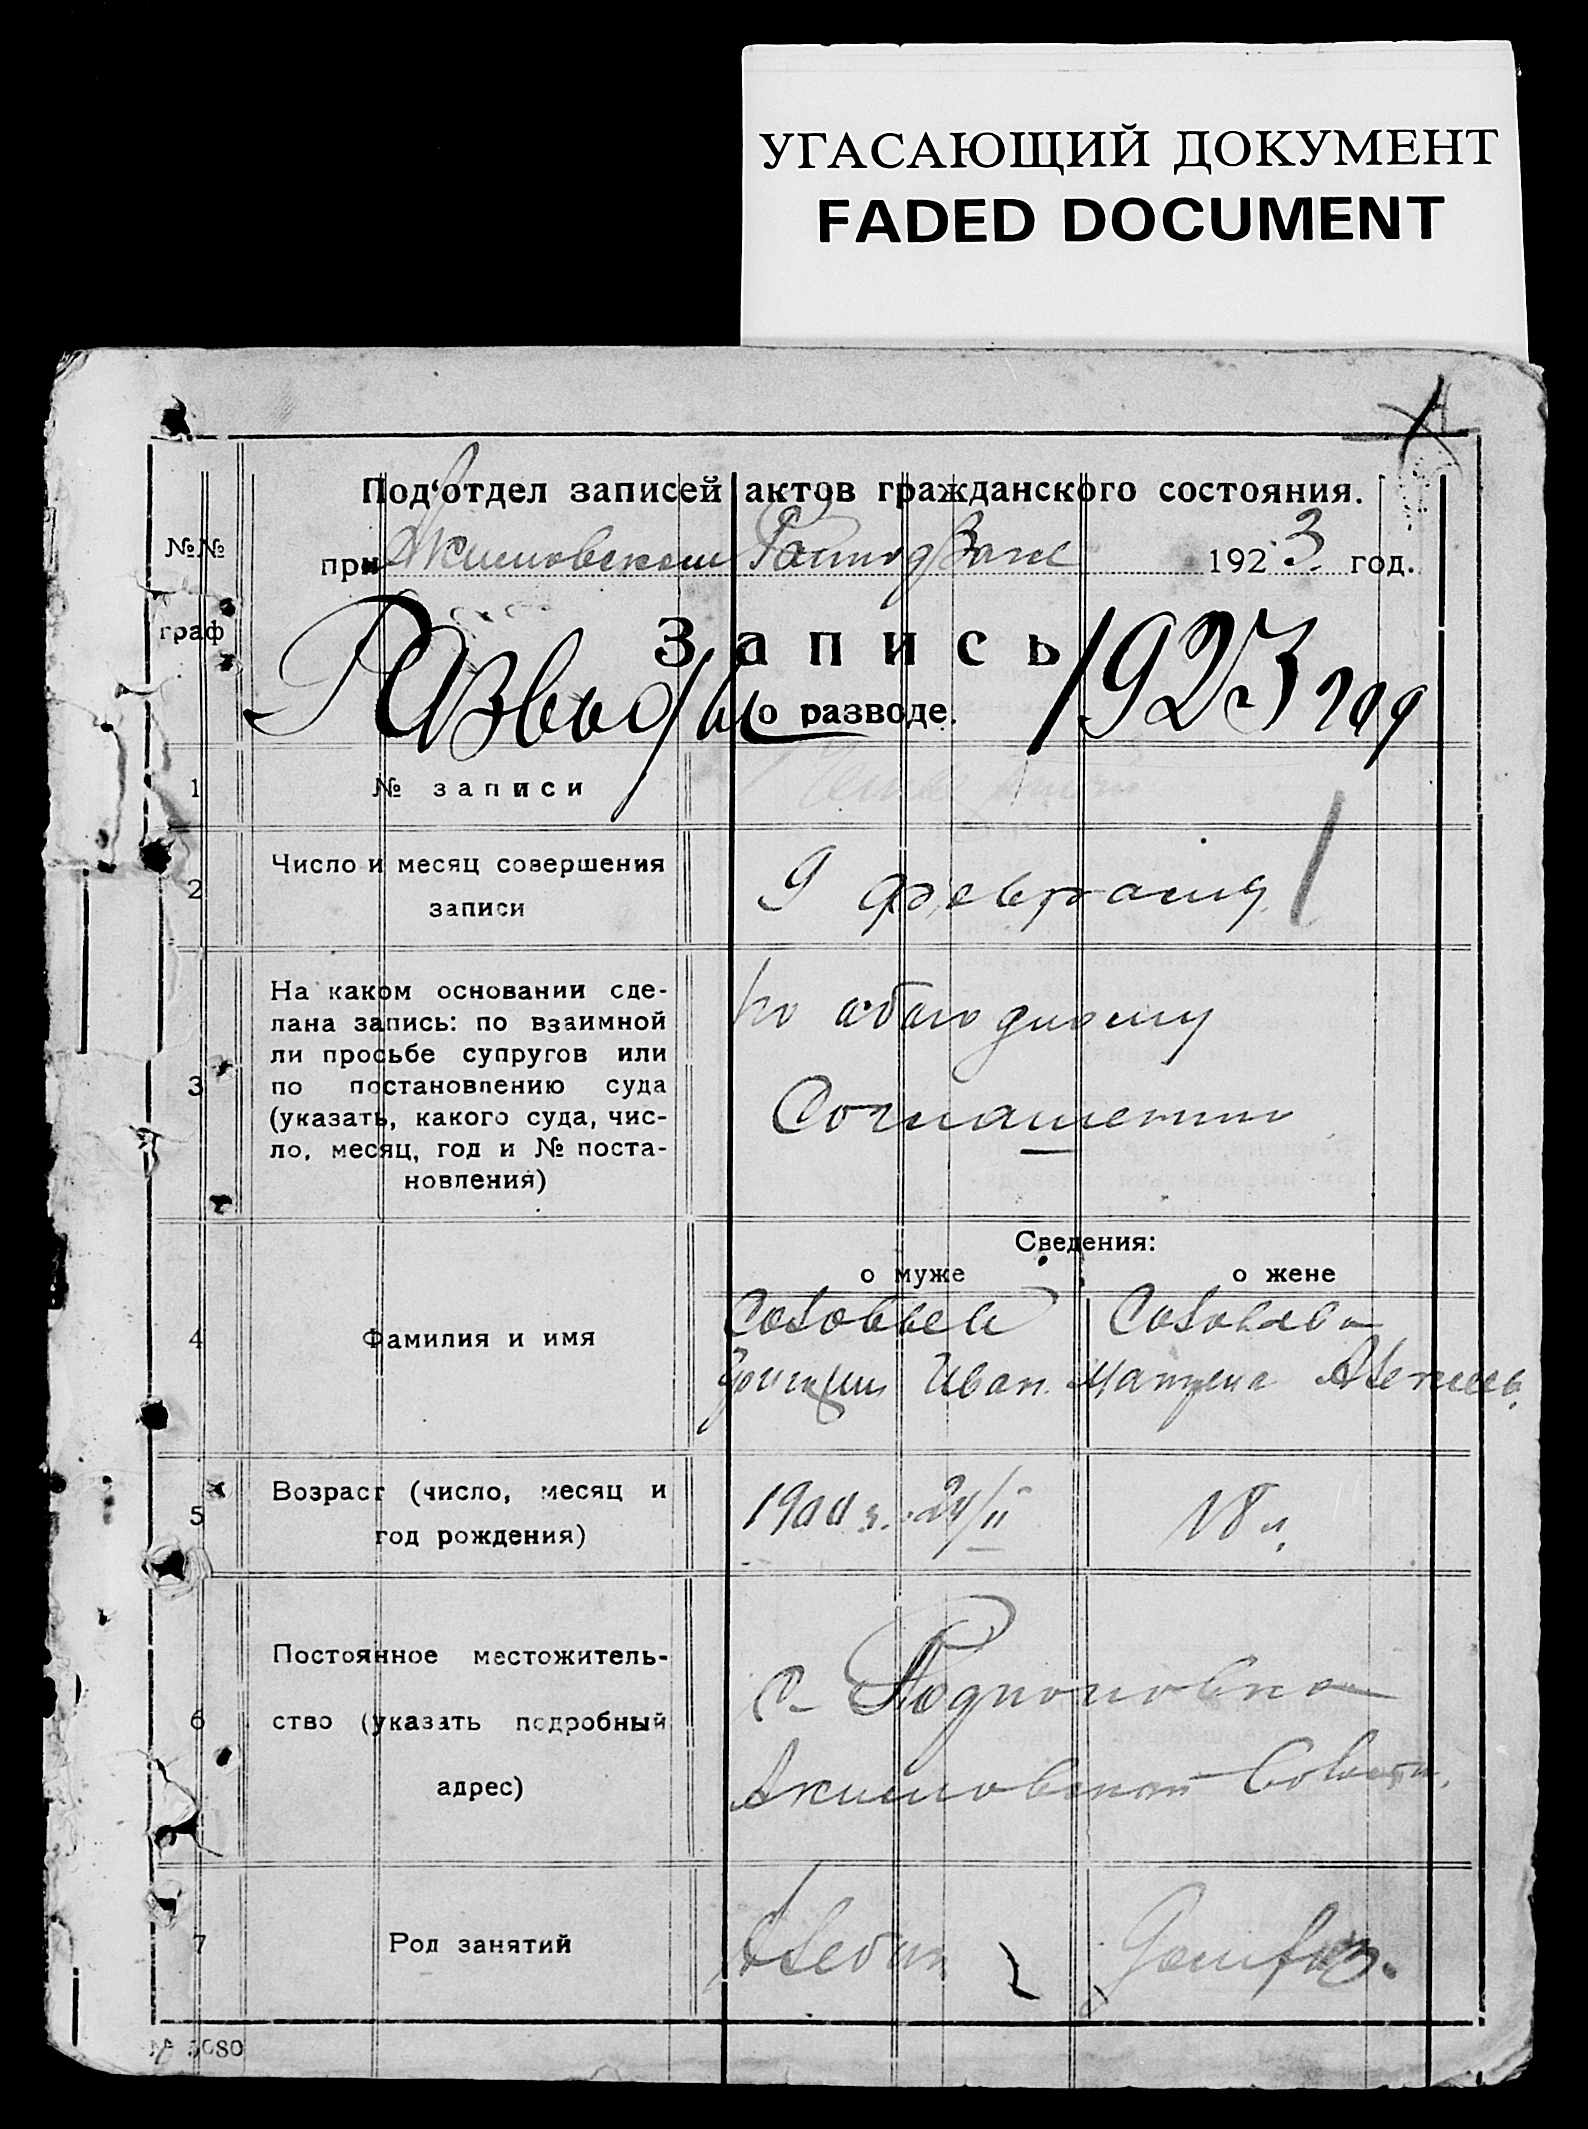 УГАСАЮЩИЙ ДОКУМЕНТ
FADED DOCUMENT
Под'отдел записей актов гражданского состояния.
№№
граф
при Акимовском 1923 год.
Запись
о разводе.
Разводы 1923 год
1 № записи
2 Число и месяц совершения
записи
9 февраля
3 На каком основании сде-
лана запись: по взаимной
ли просьбе супругов или
по постановлению суда
(указать, какого суда, чис-
ло, месяц, год и № поста-
новления)
по обоюдному
Соглашению
Сведения:
о муже о жене
4 Фамилия и имя
Соловьев Соловьева
Иван.
5 Возраст (число, месяц и
год рождения)
18 л.
6 Постоянное местожитель-
ство (указать подробный
адрес)
с. Родионовка
Акимовской волости.
7 Род занятий
№ 5080